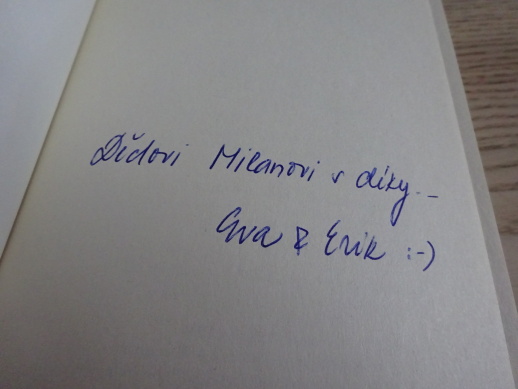 Dědovi Milanovi s díky...
Eva & Erik :-)